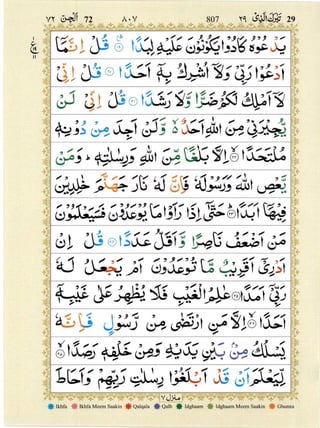 ٧٢ الجن 72 ٨٠٧ 807 ٢٩ تبرك الذى 29
يَدْعُوْهُ كَادُوْا يَكُوْنُوْنَ عَلَيْهِ لِبَدًا ۟ قُلْ اِنَّمَاۤ
اَدْعُوْا رَبِّىْ وَلَاۤ اُشْرِكُ بِهٖۤ اَحَدًا ۟ قُلْ اِنِّىْ
لَاۤ اَمْلِكُ لَكُمْ ضَرًّا وَّلَا رَشَدًا ۟ قُلْ اِنِّىْ لَنْ
يُّجِيْرَنِىْ مِنَ اللّٰهِ اَحَدٌ ۙ۬ وَّلَنْ اَجِدَ مِنْ دُوْنِهٖ
مُلْتَحَدًا ۟ اِلَّا بَلٰغًا مِّنَ اللّٰهِ وَرِسٰلٰتِهٖ ؕ وَمَنْ
يَّعْصِ اللّٰهَ وَرَسُوْلَهٗ فَاِنَّ لَهٗ نَارَ جَهَنَّمَ خٰلِدِيْنَ
فِيْهَاۤ اَبَدًا ۟ حَتّٰۤى اِذَا رَاَوْا مَا يُوْعَدُوْنَ فَسَيَعْلَمُوْنَ
مَنْ اَضْعَفُ نَاصِرًا وَّاَقَلُّ عَدَدًا ۟ قُلْ اِنْ
اَدْرِىْۤ اَقَرِيْبٌ مَّا تُوْعَدُوْنَ اَمْ يَجْعَلُ لَهٗ
رَبِّىْۤ اَمَدًا ۟ عٰلِمُ الْغَيْبِ فَلَا يُظْهِرُ عَلٰى غَيْبِهٖۤ
اَحَدًا ۟ اِلَّا مَنِ ارْتَضٰى مِنْ رَّسُوْلٍ فَاِنَّهٗ
يَسْلُكُ مِنْۢ بَيْنِ يَدَيْهِ وَمِنْ خَلْفِهٖ رَصَدًا ۟
لِّيَعْلَمَ اَنْ قَدْ اَبْلَغُوْا رِسٰلٰتِ رَبِّهِمْ وَاَحَاطَ
منزل ٧
Ikhfa Ikhfa Meem Saakin Qalqala Qalb Idghaam Idghaam Meem Saakin Ghunna